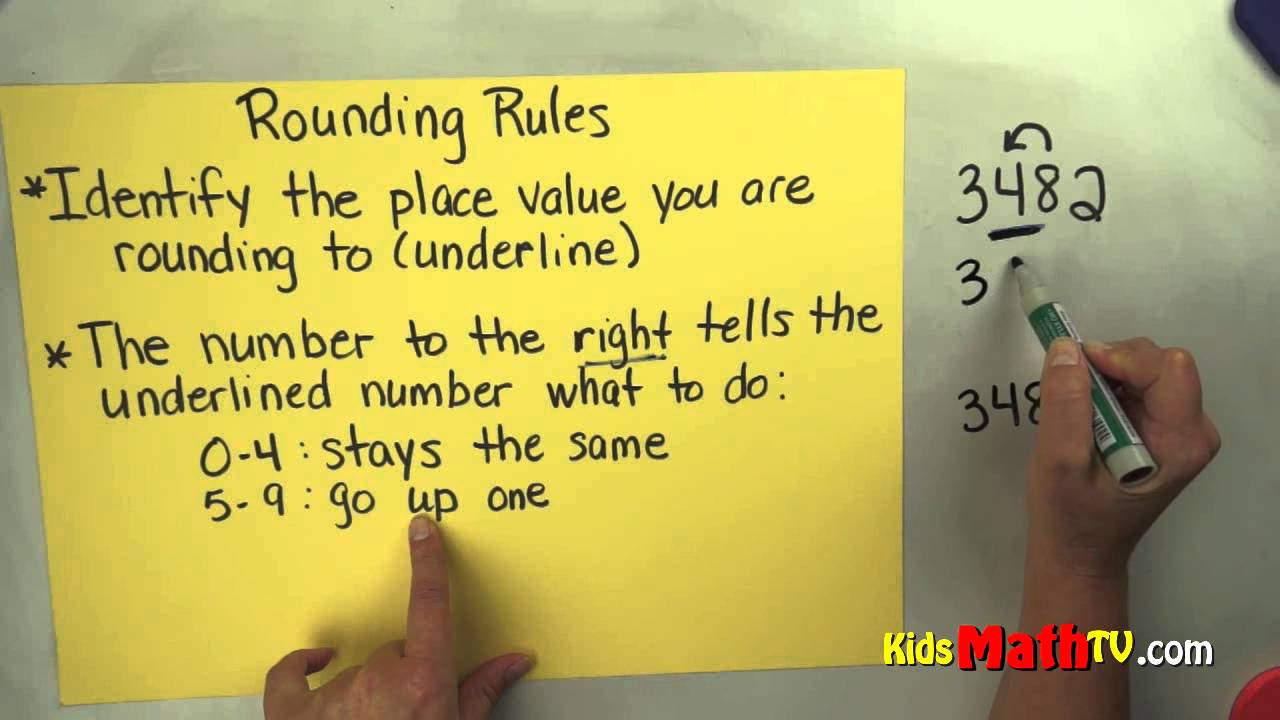 Rounding Rules
*Identify the place value you are
rounding to (underline)
* The number to the right tells the
underlined number what to do:
0-4: stays the same
5-9: go up one
3482
3
348
KidsMathTV.com